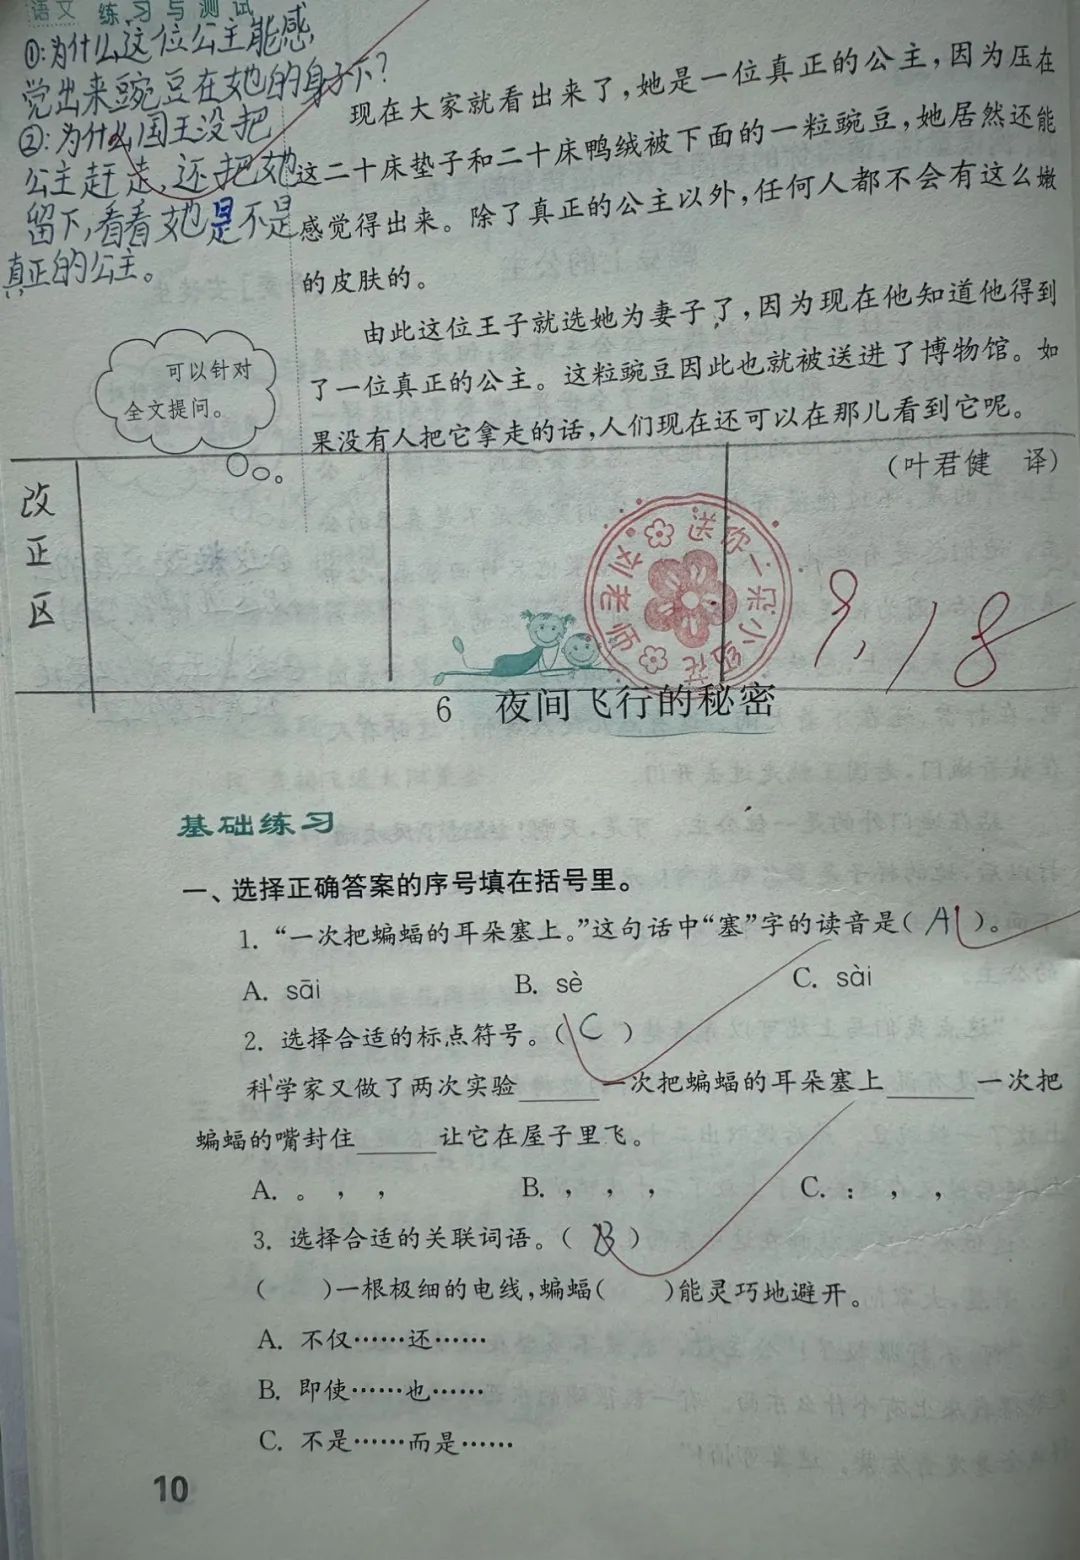 语文 练习与测试
①:为什么这位公主能感
觉出来豌豆在她的身下?
②:为什么国王没把
公主赶走,还把她
留下,看看她是不是
真正的公主。
可以针对
全文提问。
现在大家就看出来了,她是一位真正的公主,因为压在
这二十床垫子和二十床鸭绒被下面的一粒豌豆,她居然还能
感觉得出来。除了真正的公主以外,任何人都不会有这么嫩
的皮肤的。
由此这位王子就选她为妻子了,因为现在他知道他得到
了一位真正的公主。这粒豌豆因此也就被送进了博物馆。如
果没有人把它拿走的话,人们现在还可以在那儿看到它呢。
(叶君健 译)
改
正
区
刘老师送你一朵小红花
9.18
6 夜间飞行的秘密
基础练习
一、选择正确答案的序号填在括号里。
1. “一次把蝙蝠的耳朵塞上。”这句话中“塞”字的读音是( A )。
A. sāi B. sè C. sài
2. 选择合适的标点符号。( C )
科学家又做了两次实验____一次把蝙蝠的耳朵塞上____一次把
蝙蝠的嘴封住____让它在屋子里飞。
A. 。 , , B. , , , C. : , ,
3. 选择合适的关联词语。( B )
( )一根极细的电线,蝙蝠( )能灵巧地避开。
A. 不仅……还……
B. 即使……也……
C. 不是……而是……
10